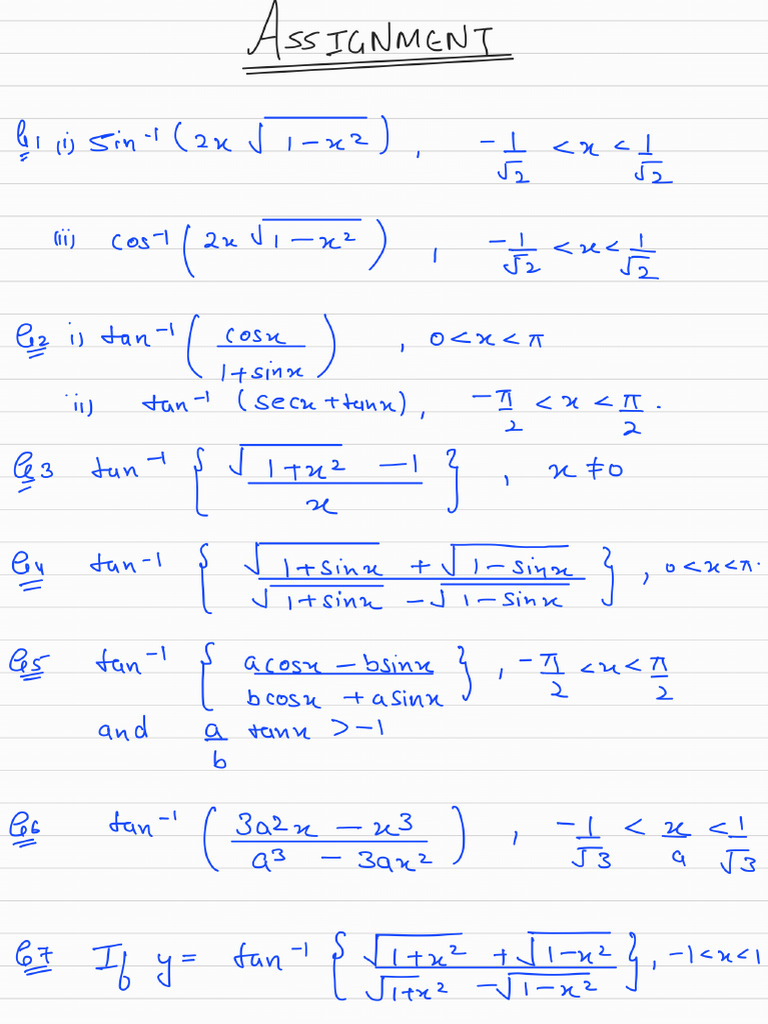 ASSIGNMENT
Q1 (i) sin⁻¹ (2x √(1-x²)) , -1/√2 < x < 1/√2
(ii) cos⁻¹ (2x √(1-x²)) , -1/√2 < x < 1/√2
Q2 i) tan⁻¹ (cosx / (1+sinx)) , 0<x<π
ii) tan⁻¹ (secx + tanx), -π/2 < x < π/2 .
Q3 tan⁻¹ { (√(1+x²) -1) / x } , x ≠ 0
Q4 tan⁻¹ { (√(1+sinx) + √(1-sinx)) / (√(1+sinx) - √(1-sinx)) } , 0<x<π.
Q5 tan⁻¹ { (acosx - bsinx) / (bcosx + asinx) } , -π/2 < x < π/2
and a/b tanx > -1
Q6 tan⁻¹ ( (3a²x - x³) / (a³ - 3ax²) ) , -1/√3 < x/a < 1/√3
Q7 If y = tan⁻¹ { (√(1+x²) + √(1-x²)) / (√(1+x²) - √(1-x²)) }, -1<x<1